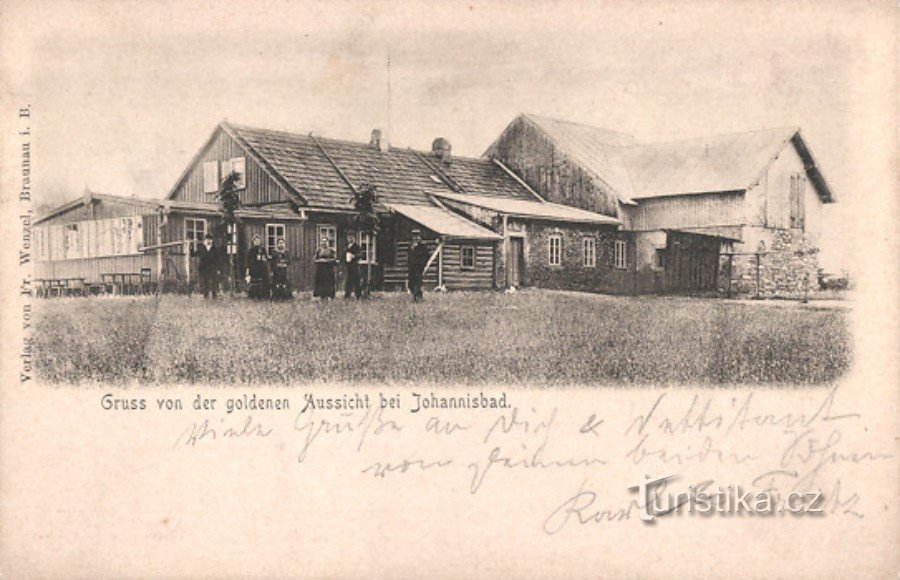 Verlag von Fr. Wenzel, Braunau i. B.
Gruss von der goldenen Aussicht bei Johannisbad.
Viele Grüße an Dich &
von deinen beiden Söhnen
Karl & Fritz
Turistika.cz